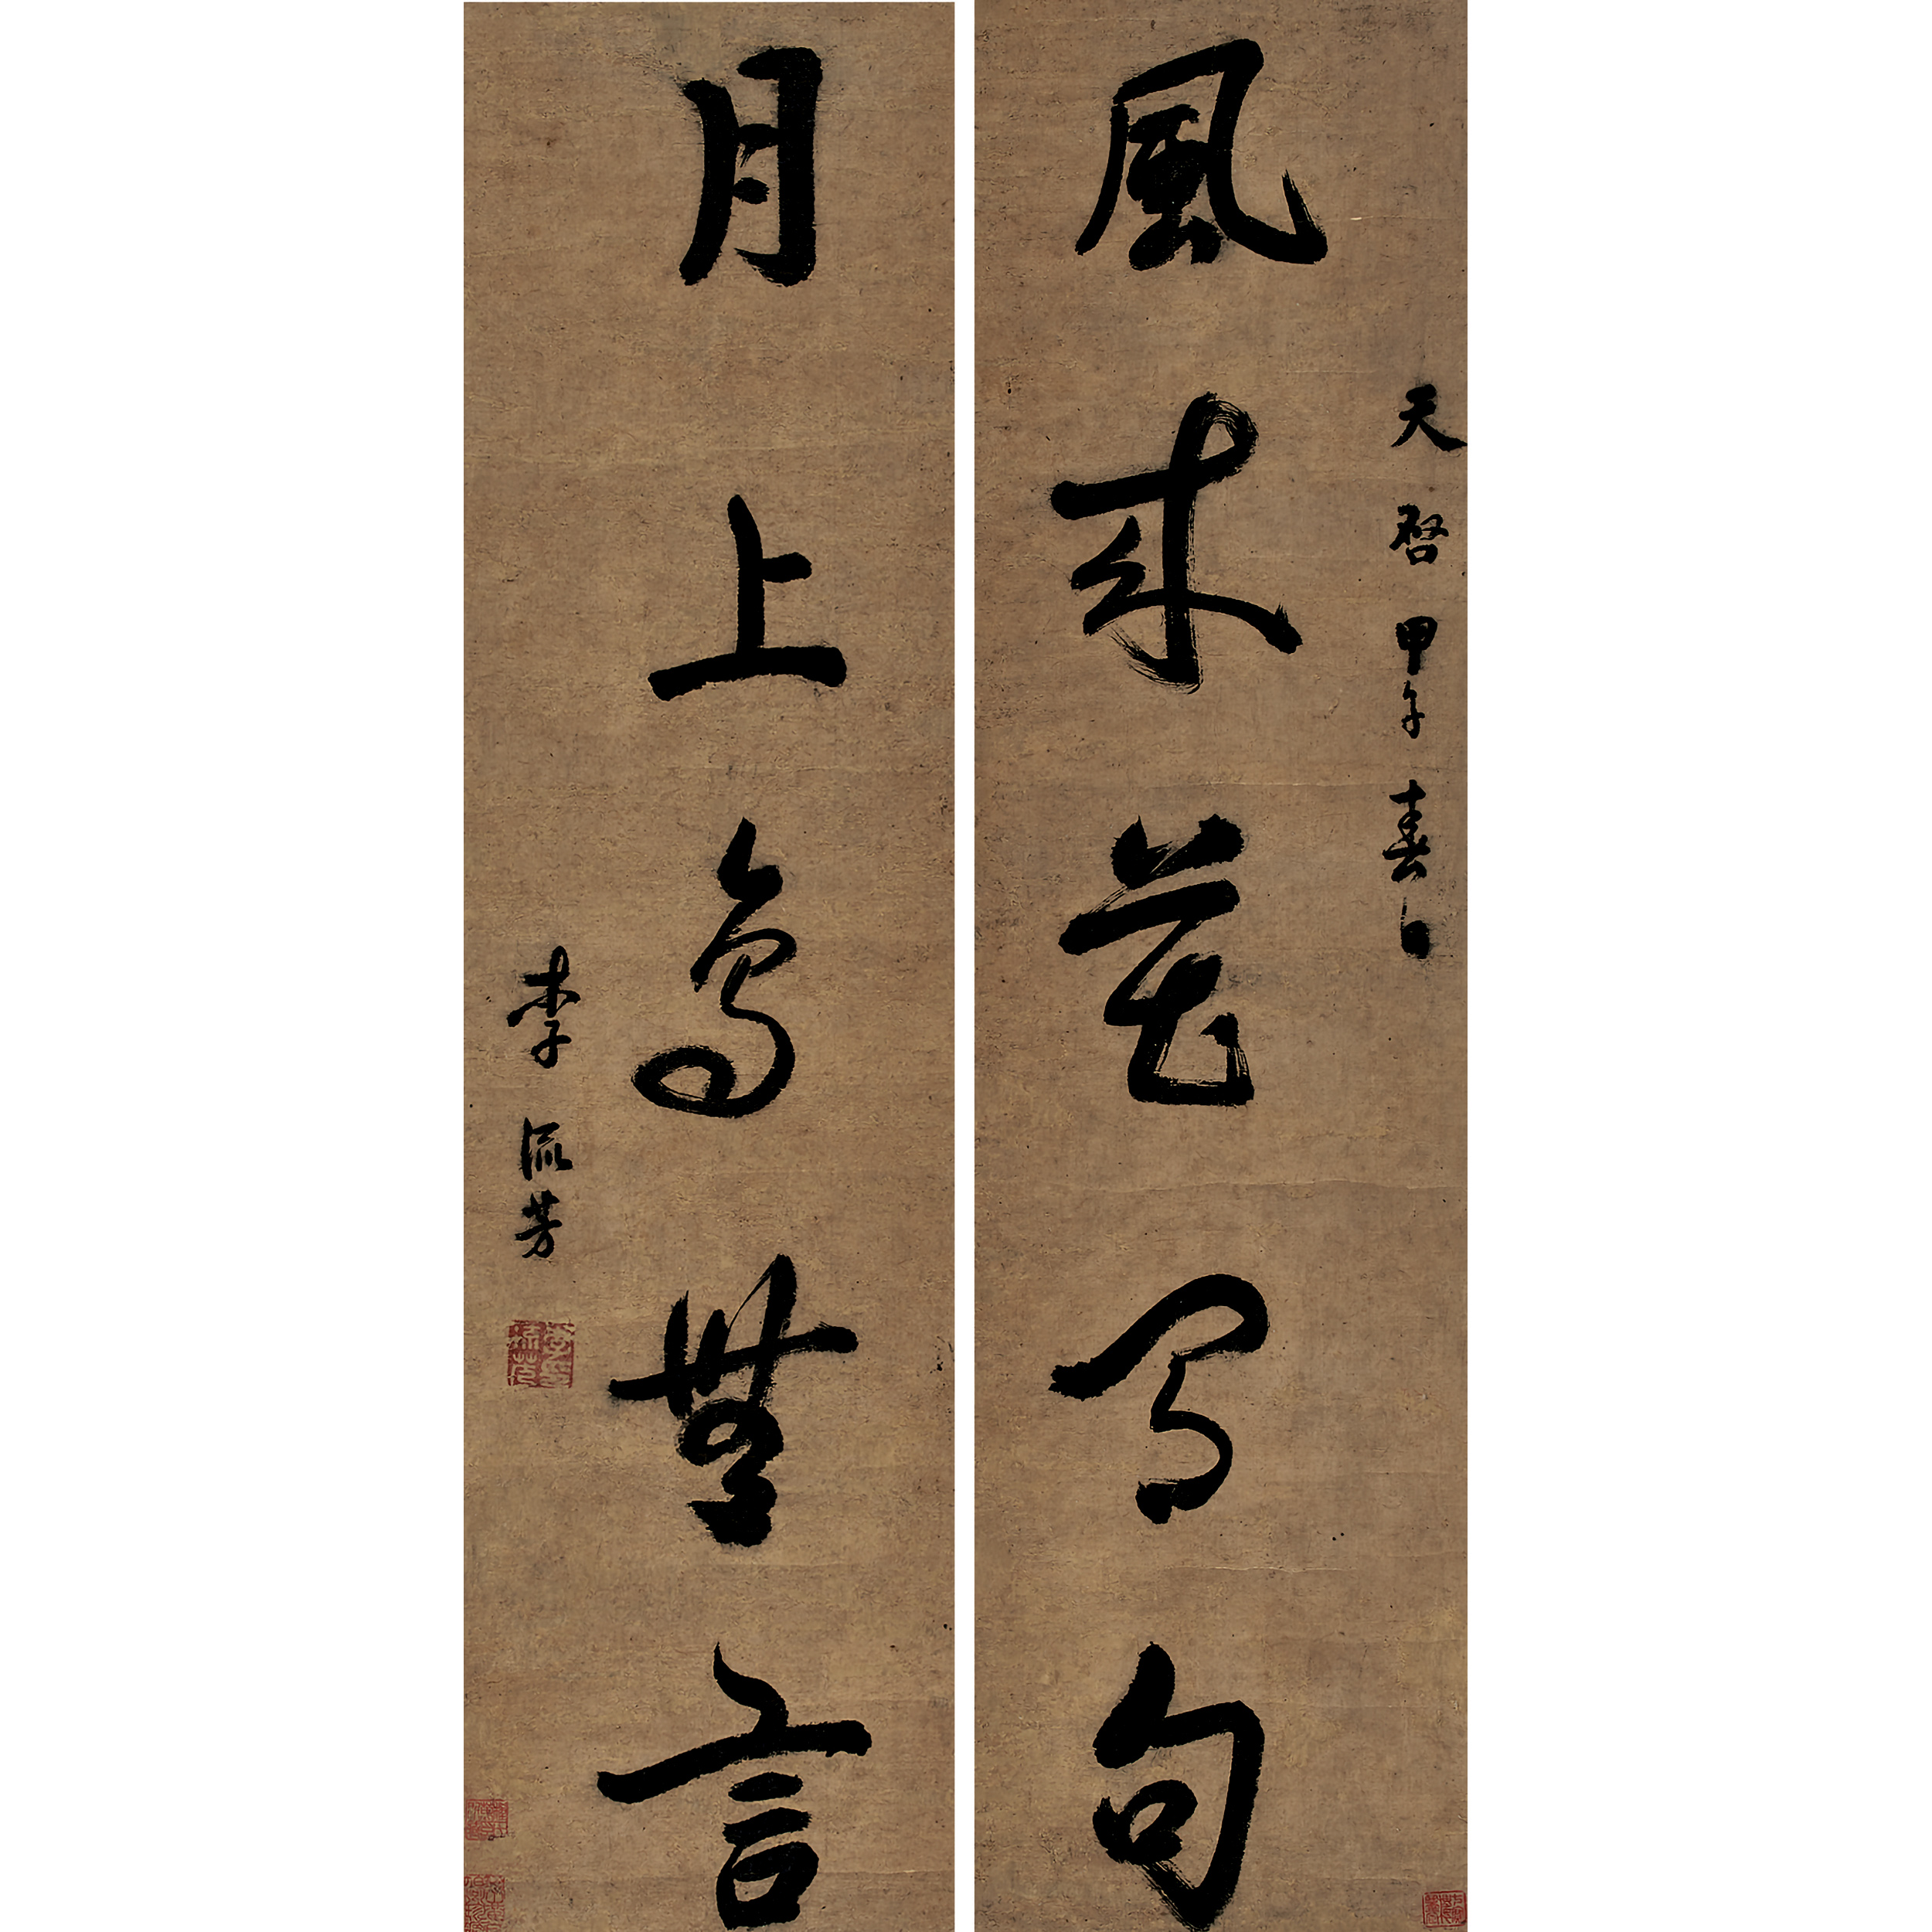 天啓甲子春日
風來花有句
月上鳥無言
李流芳